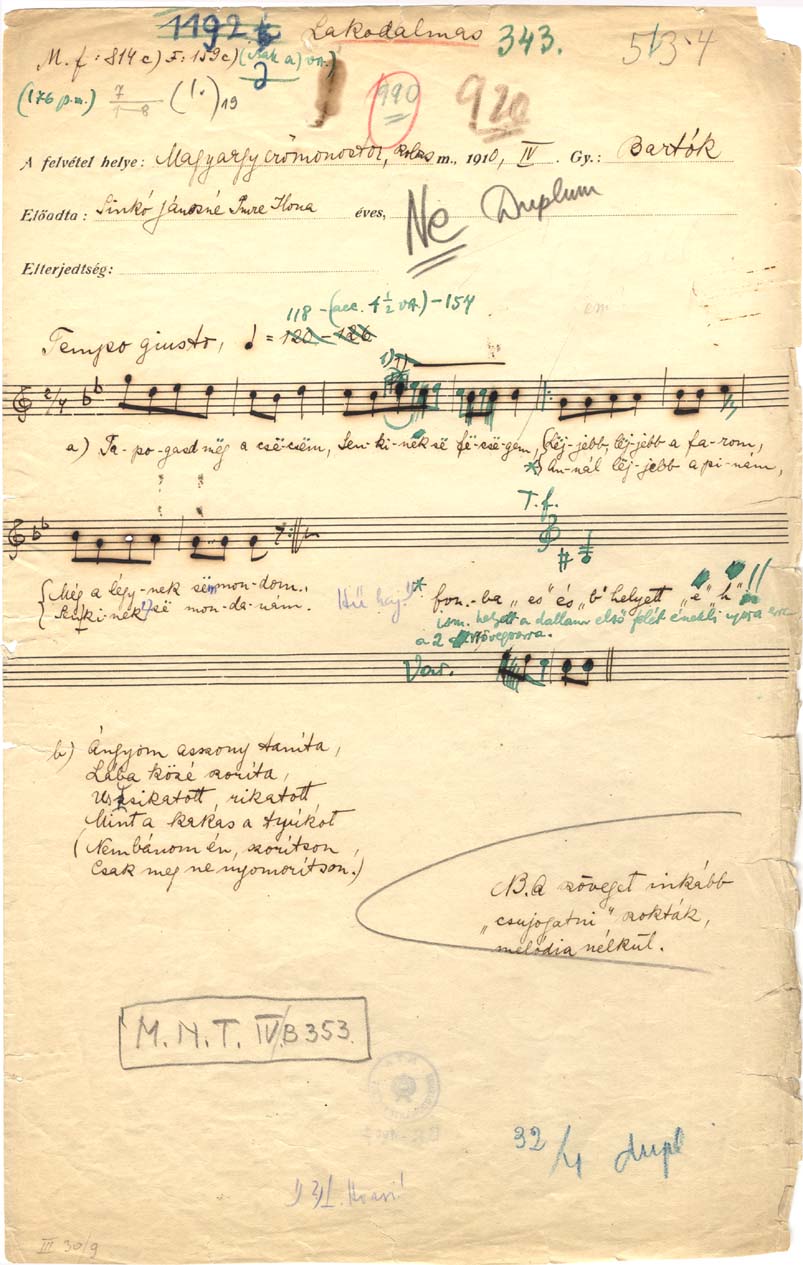 1192
Lakodalmas 343. 513.4
M. f: 814 c)
(176 p.m.) 7 (1.) 19
1-8
990 920
A felvétel helye: Magyargyerőmonostor, Kolozs m., 1910, IV. Gy.: Bartók
Előadta: Sinkó Jánosné Imre Ilona éves,
Ne Duplum
Elterjedtség:
118 - (acc. 4 1/2 VA.) - 154
Tempo giusto, = 120 - 126
2/4
a) Ta-po-gasd mëg a csë-csëm, Sen-ki-nek së fë-csë-gëm, Lëj-jebb, lëj-jebb a fa-rom,
* An-nál lëj-jebb a pi-nám,
T. f.
Még a légy-nek sëm mon-dom.
Sën-ki-nek së mon-da-nám.
* fon.-ba „es" és „b" helyett „e" „h"!!
ism. helyett a dallam első felét énekli újra erre
a 2 szövegsorra.
Var.
b) Ángyom asszony tanita,
Lába közé szorita,
Mint a kakas a tyúkot
(Nem bánom én, szorítson,
Csak meg ne nyomorítson.)
NB. A szöveget inkább
„csujogatni" szokták,
melódia nélkül.
M. N. T. IV/B 353.
32/4 dupl
III 30/9